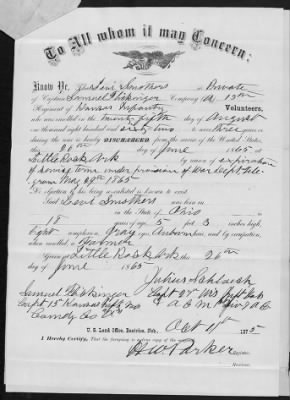 To All whom it may Concern:
Know Ye, That Levi Smothers a Private
of Captain Samuel Company (A) 13th
Regiment of Kansas Infantry Volunteers,
who was enrolled on the twenty fifth day of August
one thousand eight hundred and sixty two to serve three years or
during the war is hereby DISCHARGED from the service of the United States,
this 26th day of June 1865
Little Rock Ark by reason of expiration
of term under provision of War Dept tele-
gram May 29th 1865
No objection to his being re-enlisted is known to exist.
Said Levi Smothers was born
in the State of Ohio
18 years of age, 5 feet 3 inches high,
Light complexion, Gray eyes, Auburn hair, and by occupation,
when enrolled, a Farmer
Given at Little Rock Ark this 26th
day of June 1865
Julius
Samuel
Capt 13th Kansas Inft Vols
Comdg Co
U. S. Land Office, Beatrice, Neb. Oct 11th 1875
I Hereby Certify, That the foregoing is a true copy of the original
H W Parker
Register.